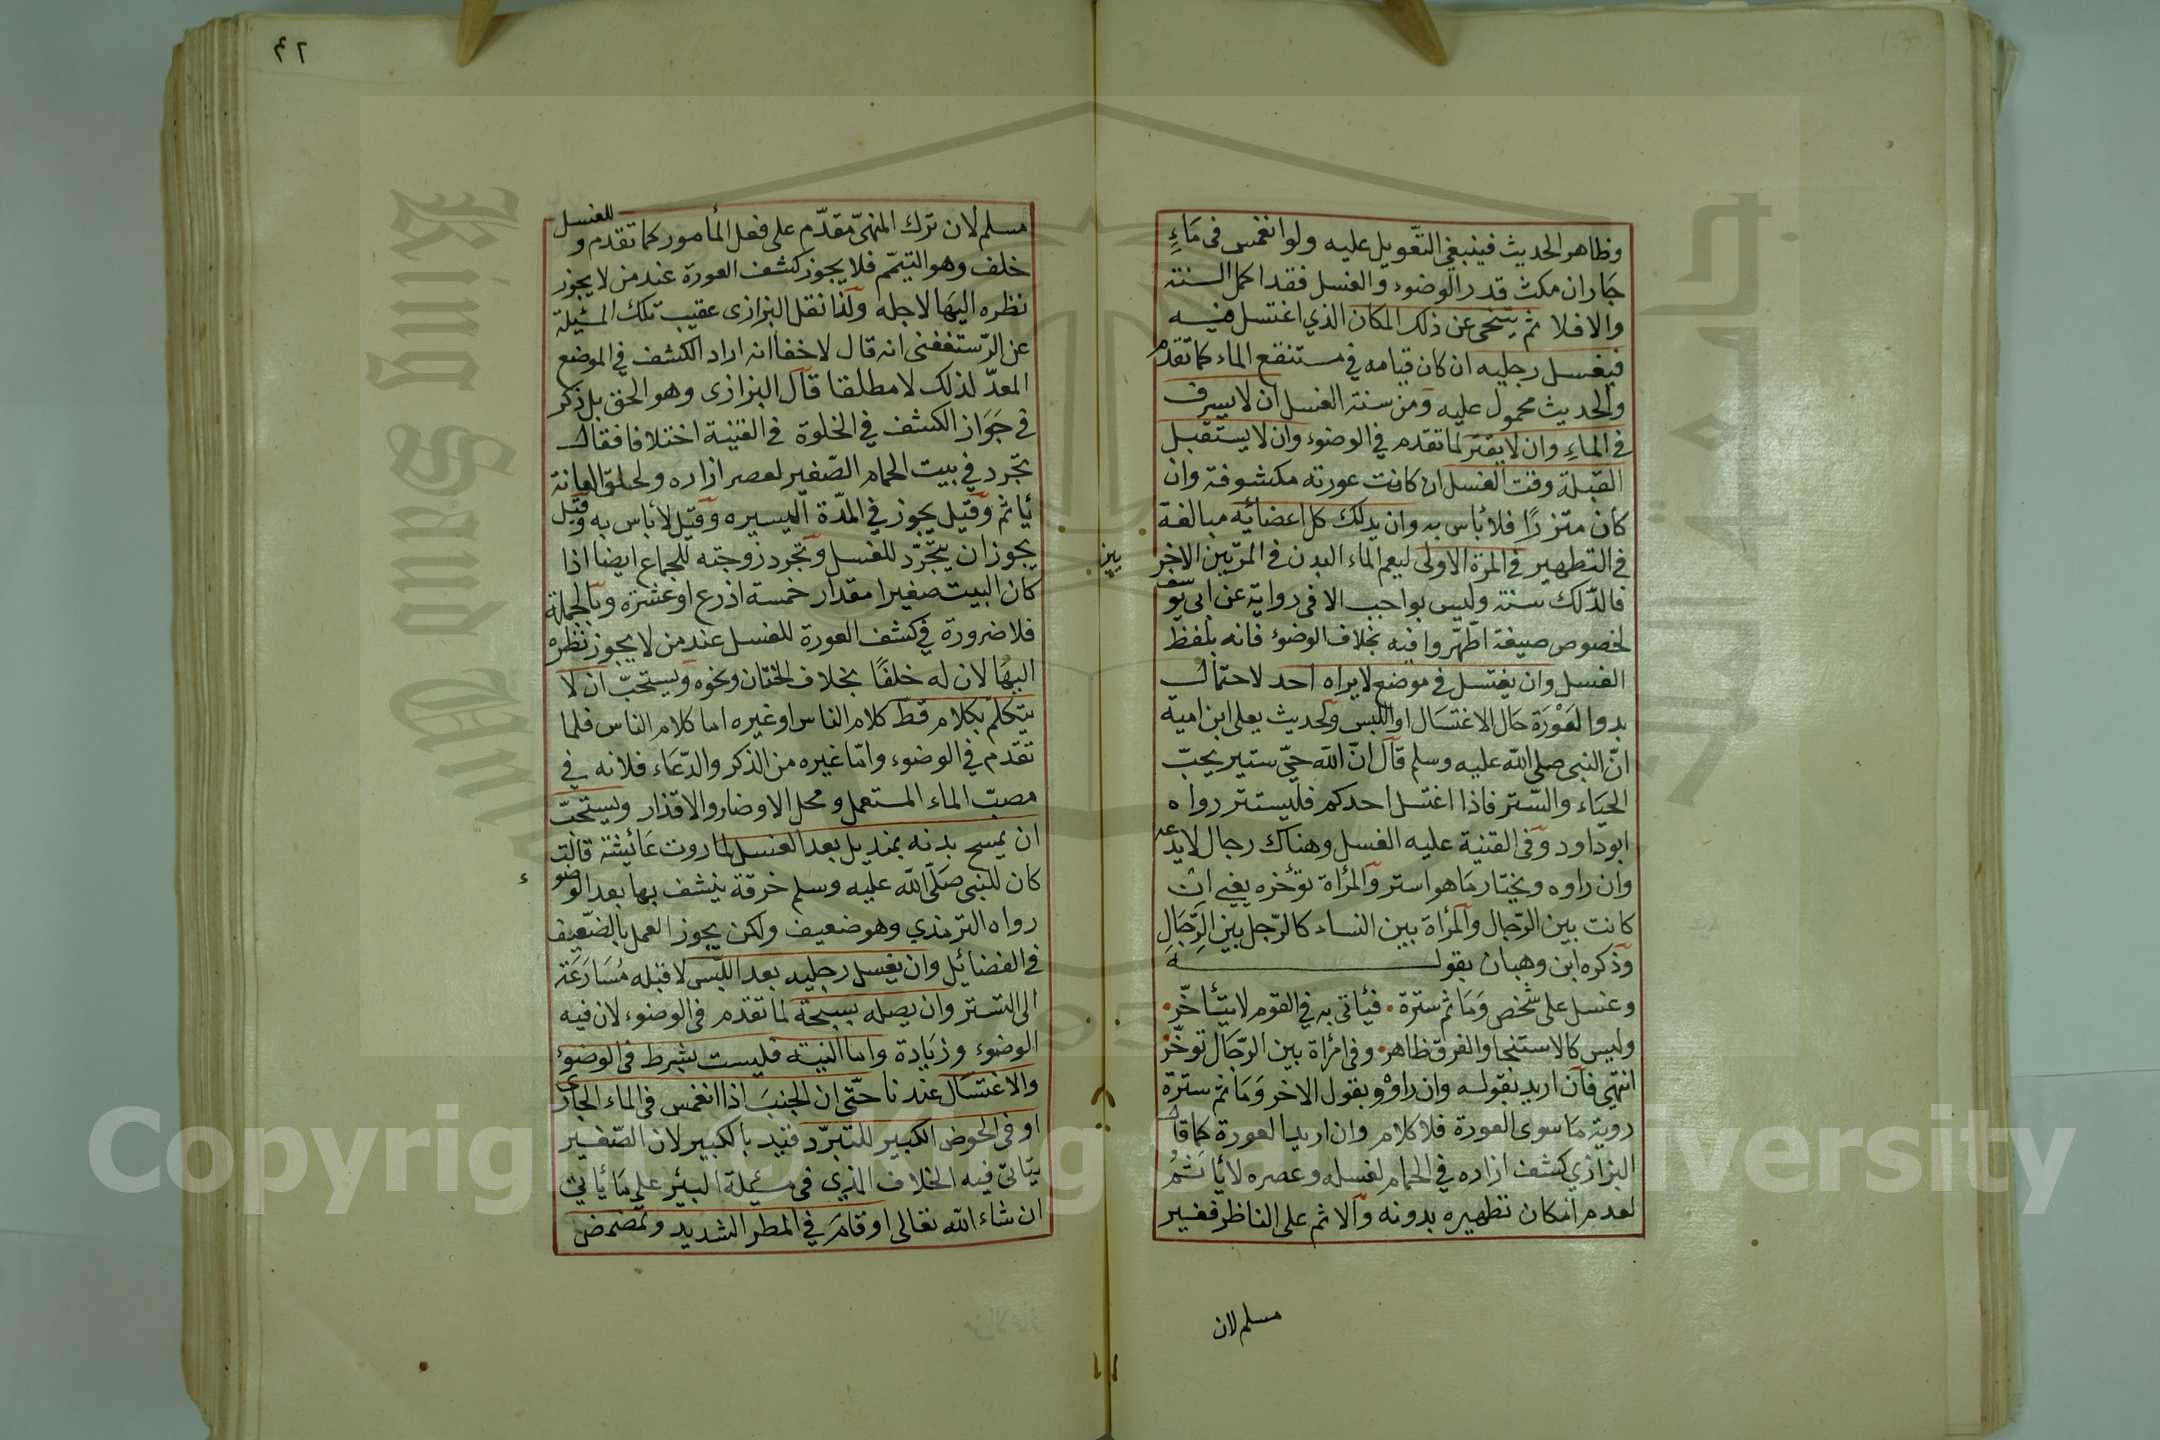 وظاهر الحديث فينبغي التعويل عليه ولو انغمس في مَاءٍ
جَار ان مكث قدر الوضوء والغسل فقد اكمل السنة
والا فلا ثم يتنحى عن ذلك المكان الذي اغتسل فيه
فيغسل رجليه ان كان قيامه في مستنقع الماء كما تقدم
والحديث محمول عليه ومن سنة الغسل ان لا يسرف
في الماءِ وان لا يقتر لما تقدم في الوضوء وان لا يستقبل
القبلة وقت الغسل ان كانت عورته مكشوفة وان
كان متزرًا فلا بأس به وان يدلك كل اعضائه مبالغة
في التطهير في المرة الاولى ليعم الماء البدن في المرتين الاخر
يين
فالدّلك سنة وليس بواجب الا في رواية عن ابي يوسف
لخصوص صيغة اطّهّروا فيه بخلاف الوضوء فانه بلفظ
الغسل وان يغتسل في موضع لا يراه احد لاحتمال
بدو العَوْرَة حَال الاغتسَال او اللبس ولحديث يعلى ابن امية
انّ النبي صلى الله عليه وسلم قال انّ الله حيّ ستير يحبّ
الحيَاء والسّتر فاذا اغتسل احدكم فليستتر رواه
ابو داود وفي القنية عليه الغسل وهناك رجال لا يدعه
وان راوه ويختار مَا هو استر والمرأة تؤخره يعني ان
كانت بين الرّجال والمرأة بين النساء كالرّجل بين الرِّجَالِ
وذكره ابن وهبان بقولـــه
وغسل على شخص وَمَا ثم سترة • فيأتي به في القوم لا يتأخّر •
وليس كالاستنجا والفرق ظاهر • وفي امرأة بين الرّجَال تؤخّر •
انتهى فان اريد بقوله وان راوْه وبقول الاخر وَمَا ثم سترة
روية مَا سوى العورة فلا كلام وان اريد العورة كما قال
البزازي كشف ازاره في الحمام لغسله وعصره لا يأثمُ
لعدم امكان تطهيره بدونه والاثم على الناظر فغير
مسلم لان
٤٦
مسلم لان ترك المنهيّ مقدّم على فعل المأمور كما تقدم وللغسل
خلف وهو التيمّم فلا يجوز كشف العورة عند من لا يجوز
نظره اليهَا لاجله ولذا نقل البزازي عقيب تلك المسئلة
عن الرّستغفني انه قال لا خفا انه اراد الكشف في الموضع
المعدّ لذلك لا مطلقا قال البزازي وهو الحق بل ذكر
في جَوَاز الكشف في الخلوة في القنية اختلافا فقال
تجّرد في بيت الحمام الصّغير لعصر ازاره ولحلق العانة
يأثم وقيل يجوز في المدّة اليسيره وقيل لا بأس به وقيل
يجوز ان يتجّرّد للغسل وتجرد زوجته للجماع ايضا اذا
كان البيت صغيرا مقدار خمسة اذرع او عشرة وبالجملة
فلا ضرورة في كشف العورة للغسل عند من لا يجوز نظره
اليهَا لان له خلفًا بخلاف الختان ونحوه ويستحبّ ان لا
يتكلم بكلام قطّ كلام الناس او غيره اما كلام الناس فلما
تقدم في الوضوء وامّا غيره من الذكر والدّعَاء فلانه في
مصبّ الماء المستعمل ومحل الاوضار والاقذار ويستحبّ
ان يمسح بدنه بمنديل بعد الغسل لما روت عَائِشَة قالت
كان للنبي صَلّى الله عليه وسلم خرقة ينشف بها بعد الوضو
ء
رواه الترمذي وهو ضعيف ولكن يجوز العمل بالضّعيف
في الفضائل وان يغسل رجليه بعد اللبس لا قبله مُسَارَعَة
الى التستر وان يصله بسبحة لما تقدم في الوضوء لان فيه
الوضوء وزيَادة واما النية فليست بشرط في الوضوء
والاغتسَال عندنا حتّى ان الجنبَ اذا انغمس في الماء الجاري
او في الحوض الكبير للتبرّد قيد بالكبير لان الصّغير
يتاتى فيه الخلاف الذي في مسئلة البئر على مَا يأتي
ان شاء الله تعالى او قام في المطر الشديد وتمضمض
King Saud
Copyright © King Saud University